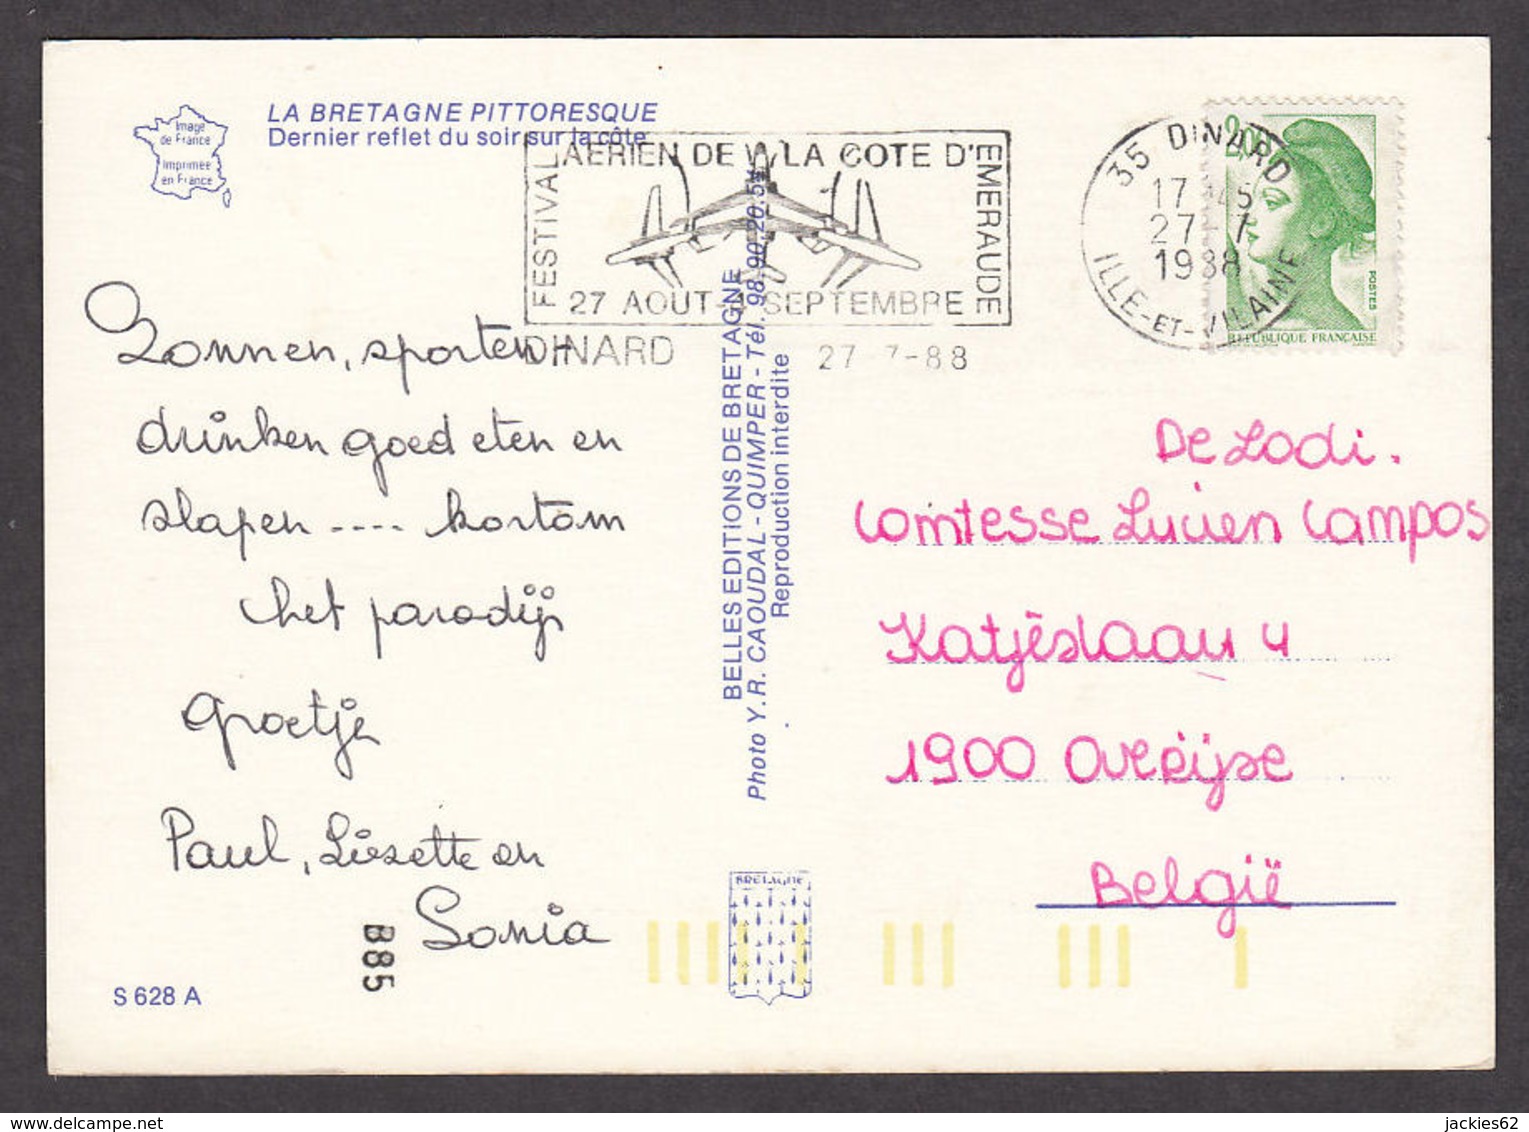 Image
de France
Imprimée
en France
LA BRETAGNE PITTORESQUE
Dernier reflet du soir sur la côte
FESTIVAL AERIEN DE LA COTE D'EMERAUDE
27 AOUT-4 SEPTEMBRE
DINARD 27 7-88
35 DINARD
17 45
27 7
1988
ILLE-ET-VILAINE
2,00
POSTES
REPUBLIQUE FRANÇAISE
Zonnen, sporten,
drinken goed eten en
slapen ---- kortom
het paradijs
groetjes
Paul, Liesette en
Sonia
BELLES EDITIONS DE BRETAGNE
Photo Y.R. CAOUDAL - QUIMPER - Tél. 98.90.20.5
Reproduction interdite
De Lodi.
Comtesse Lucien Campos
4
1900 Overijse
België
BRETAGNE
B85
S 628 A
jackies62